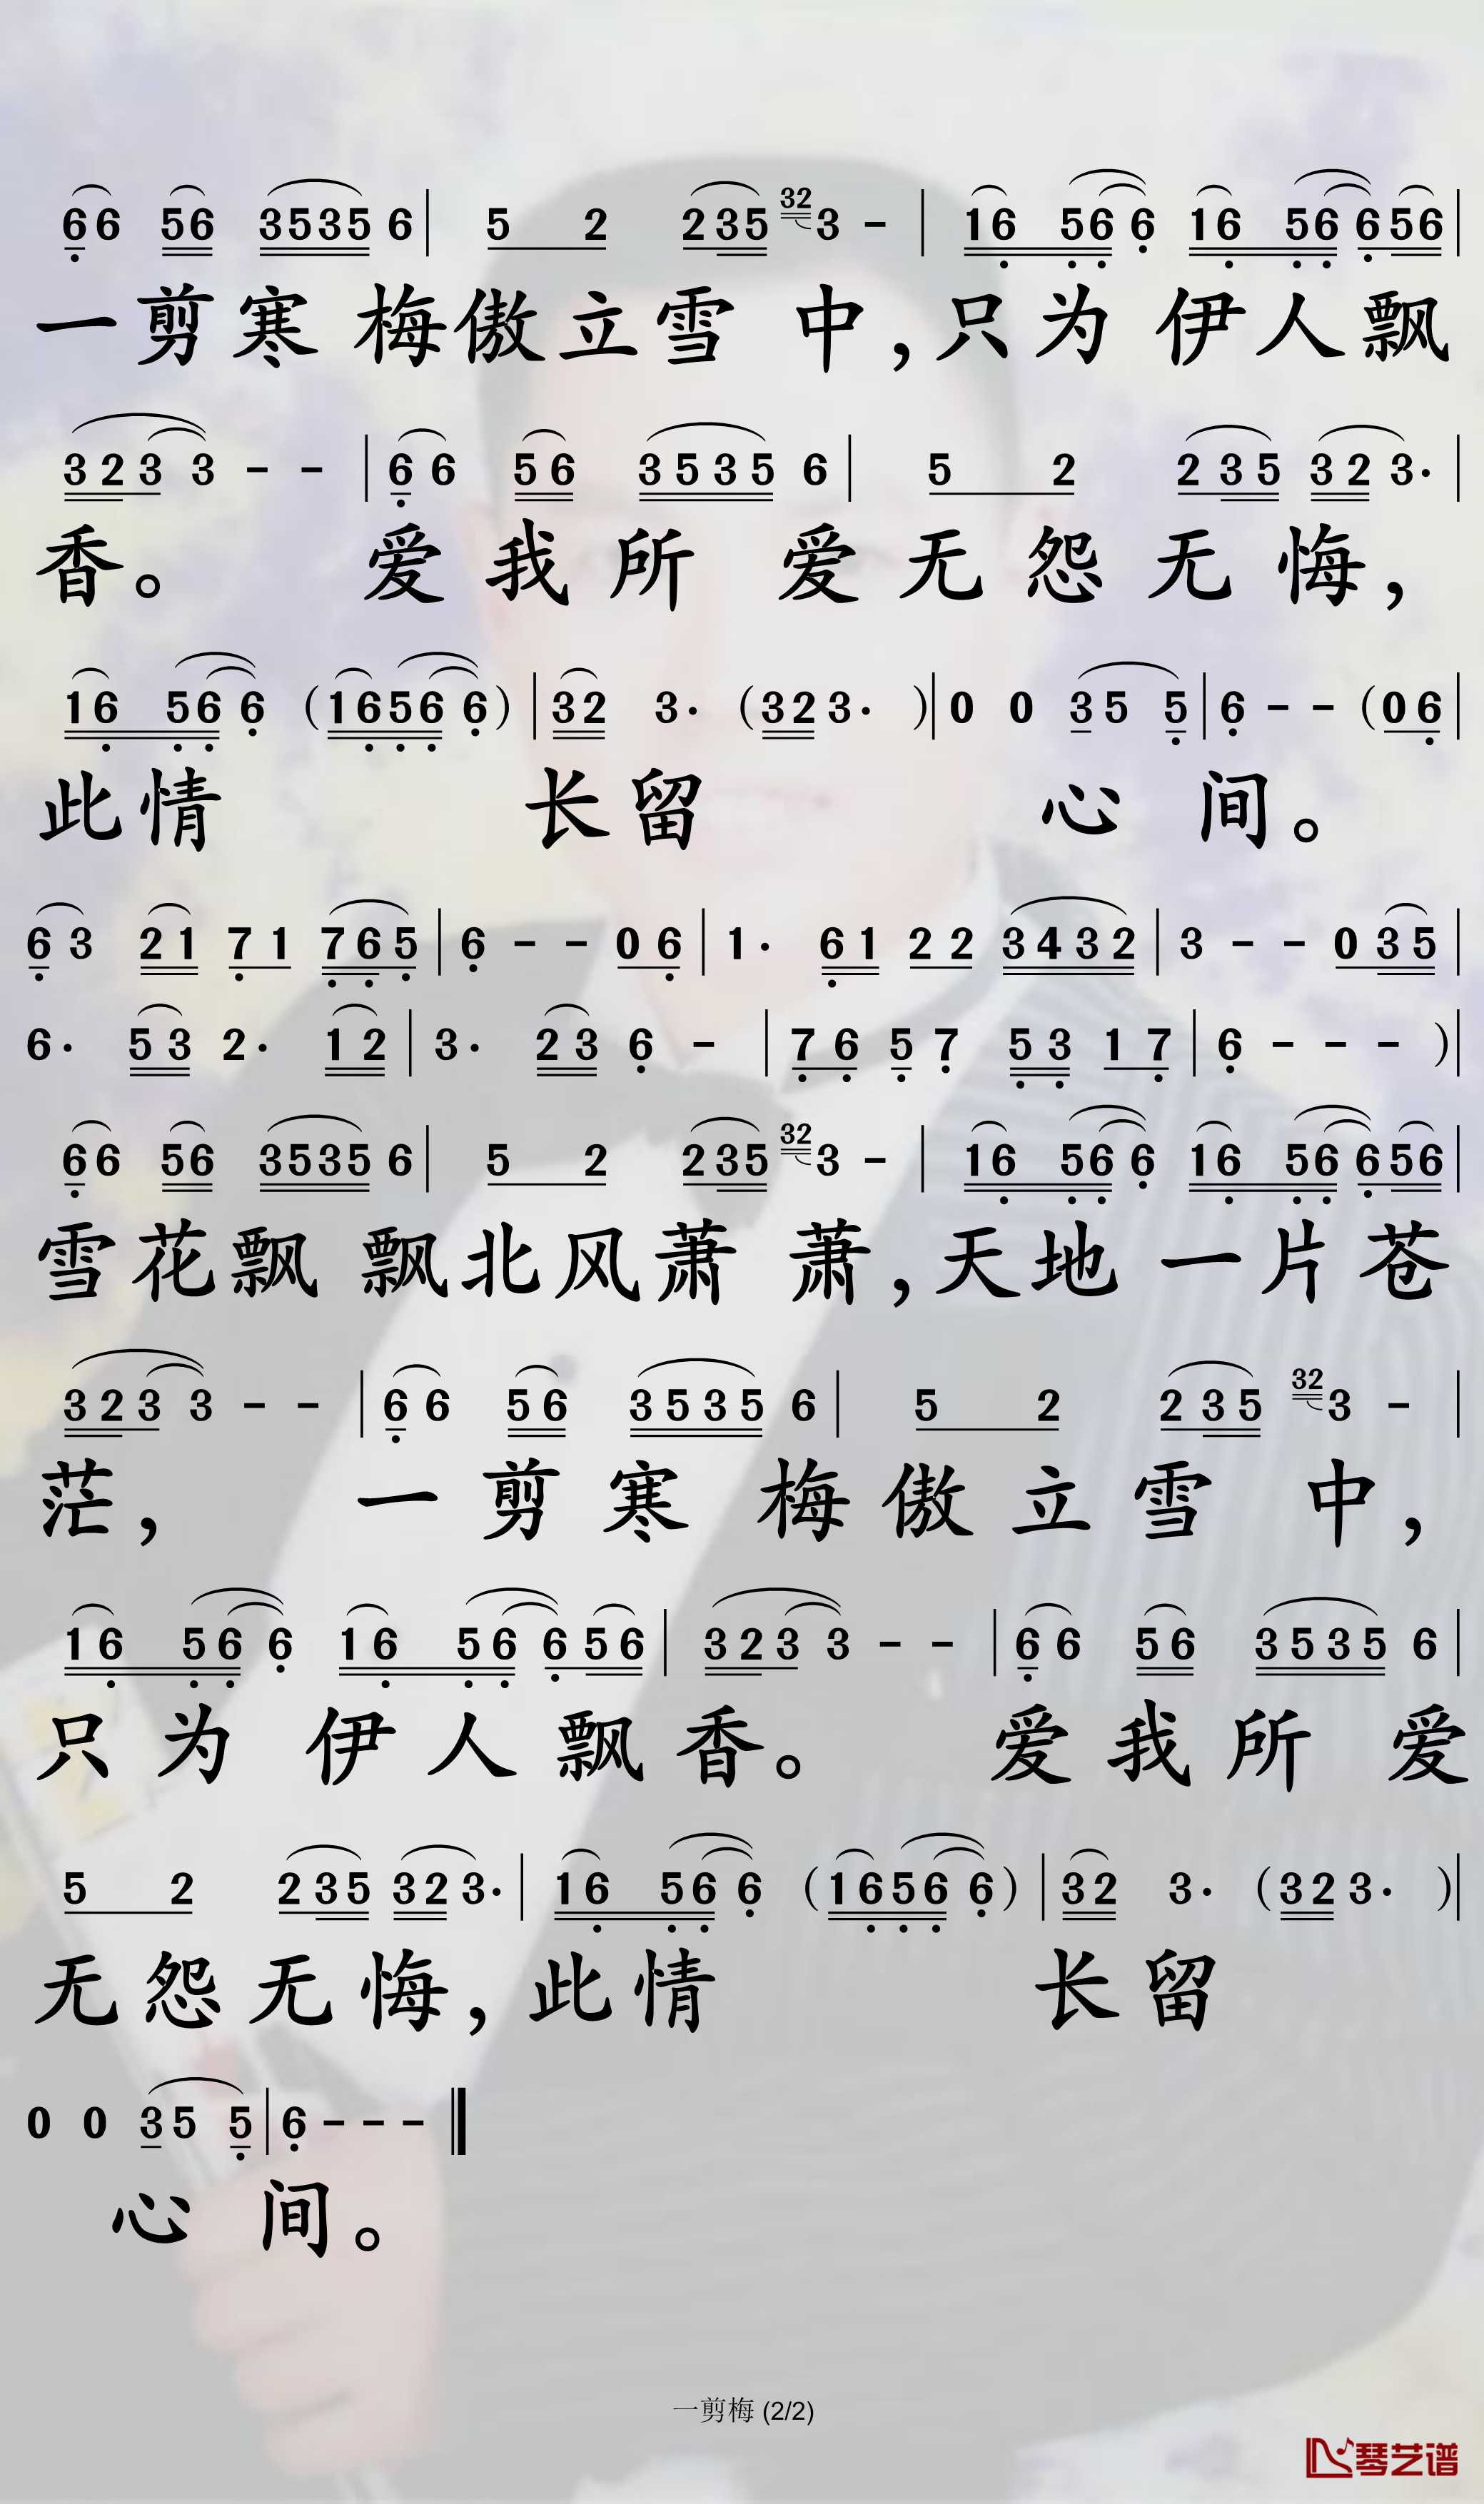 66 56 3535 6 | 5 2 235 32 3 - | 16 56 6 16 56 656 |
一剪寒 梅傲立雪 中,只为 伊人飘
323 3 - - | 6 6 56 3535 6 | 5 2 235 32 3. |
香。 爱我所 爱无怨无悔,
16 56 6 (1656 6) | 32 3. (32 3. ) | 0 0 35 5 | 6 - - (06 |
此情 长留 心 间。
6 3 21 71 765 | 6 - - 06 | 1. 61 22 3432 | 3 - - 035 |
6. 53 2. 12 | 3. 23 6 - | 76 5 7 53 17 | 6 - - - ) |
66 56 3535 6 | 5 2 235 32 3 - | 16 56 6 16 56 656 |
雪花飘 飘北风萧 萧,天地 一片苍
323 3 - - | 6 6 56 3535 6 | 5 2 235 32 3 - |
茫, 一剪寒 梅傲立雪 中,
16 56 6 16 56 656 | 323 3 - - | 6 6 56 3535 6 |
只为 伊人飘香。 爱我所 爱
5 2 235 32 3. | 16 56 6 (1656 6) | 32 3. (32 3. ) |
无怨无悔,此情 长留
0 0 35 5 | 6 - - - ‖
心 间。
一剪梅 (2/2)
琴艺谱